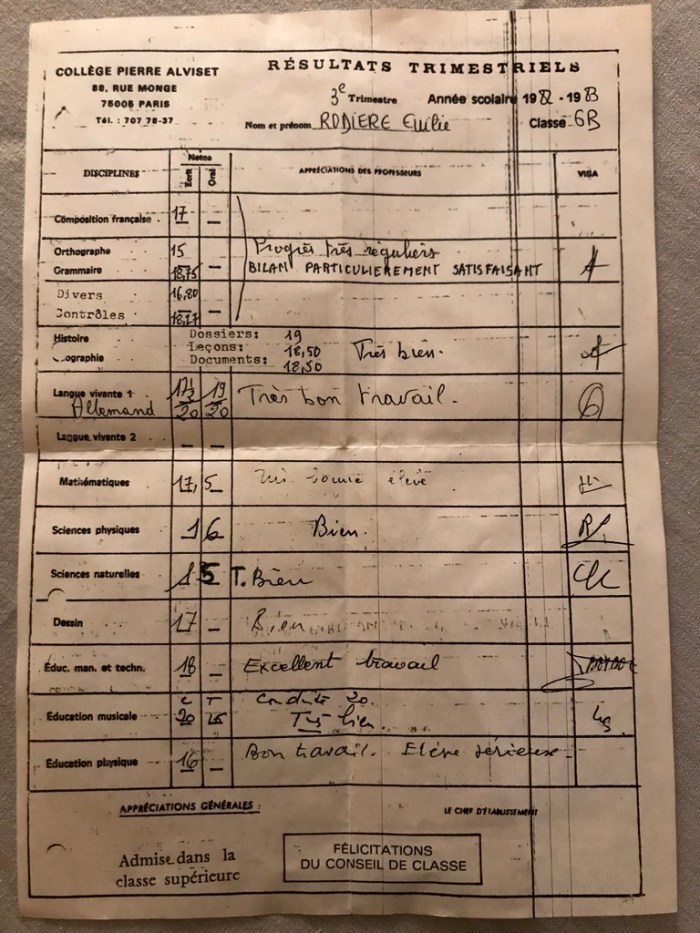 COLLÈGE PIERRE ALVISET
88, RUE MONGE
75005 PARIS
Tél. : 707 78-37
RÉSULTATS TRIMESTRIELS
3e Trimestre Année scolaire 1982 - 1983
Nom et prénom RODIERE Emilie Classe 6B
DISCIPLINES Notes Ecrit Oral APPRÉCIATIONS DES PROFESSEURS VISA
Composition française 17 –
Orthographe 15 Progrès très réguliers
Grammaire 18,75 – BILAN PARTICULIEREMENT SATISFAISANT
Divers 16,80
Contrôles 18,27 –
Histoire Dossiers: 19
Leçons: 18,50 Très bien.
ographie Documents: 18,50
Langue vivante 1 17½/20 19/20 Très bon travail.
Allemand
Langue vivante 2 – –
Mathématiques 17,5 Très bonne élève
Sciences physiques 16 Bien.
Sciences naturelles 15 T. Bien
Dessin 17 – Bien
Éduc. man. et techn. 18 – Excellent travail
C T Conduite 20.
Education musicale 20 Très bien.
Éducation physique 16 – Bon travail. Elève sérieuse.
APPRÉCIATIONS GÉNÉRALES : LE CHEF D'ÉTABLISSEMENT
Admise dans la
classe supérieure
FÉLICITATIONS
DU CONSEIL DE CLASSE